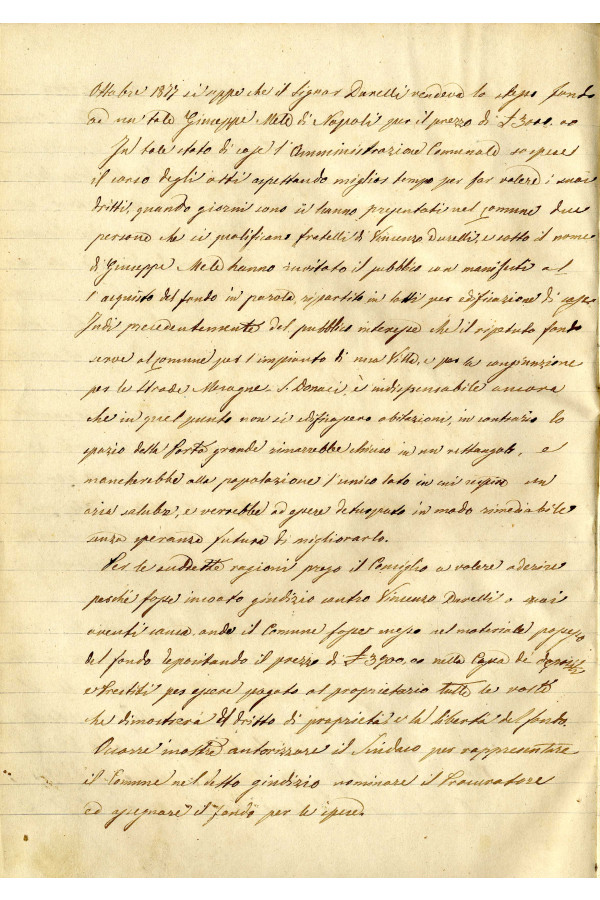 Ottobre 1877 si seppe che il Signor Durelli vendeva lo stesso fondo
ad un tale Giuseppe Mele di Napoli per il prezzo di £ 3900.00
In tale stato di cose l'Amministrazione Comunale sospese
il corso degli atti aspettando miglior tempo per far valere i suoi
dritti, quando giorni sono si hanno presentati nel Comune due
persone che si qualificano fratelli di Vincenzo Durelli, e sotto il nome
di Giuseppe Mele hanno invitato il pubblico con manifesti al
l'acquisto del fondo in parola, ripartito in lotti per edificazione di case
Indi precedentemente del pubblico interesse che il ripetuto fondo
serve al Comune per l'impianto di una Villa, e per la congiunzione
per le strade Mesagne S. Donaci, è indispensabile ancora
che in quel punto non si edificassero abitazioni, in contrario lo
spazio della Porta grande rimarrebbe chiuso in un rettangolo, e
mancherebbe alla popolazione l'unico lato in cui respira un
aria salubre, e verrebbe ad essere deturpato in modo rimediabile
senza speranza futura di migliorarlo.
Per le suddette ragioni prego il Consiglio a volere aderire
perché fosse incoato giudizio contro Vincenzo Durelli o suoi
aventi causa onde il Comune fosse messo nel materiale possesso
del fondo depositando il prezzo di £ 3900.00 nella Cassa de depositi
e Prestiti per essere pagato al proprietario tutte le volte
che dimostrerà il dritto di proprietà e la libertà del fondo.
Occorre inoltre autorizzare il Sindaco per rappresentare
il Comune nel detto giudizio nominare il Procuratore
ed assegnare il fondo per le spese.